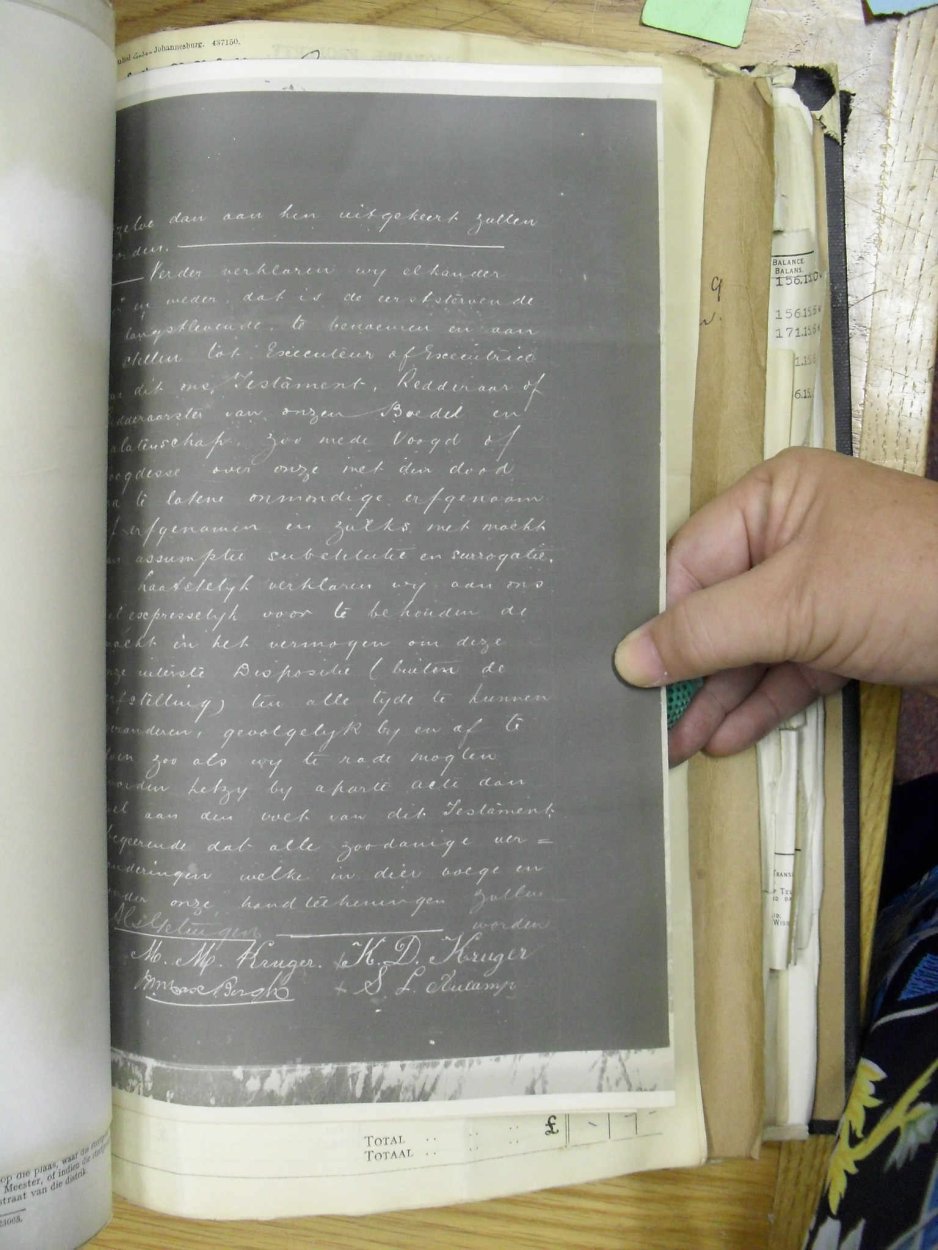 Johannesburg. 437150.
zelve dan aan hen uitgekeert zullen
orden.
Verder verklaren wy elkander
en weder, dat is de eerststervende
langstlevende, te benoemen en aan
stellen tot Executeur of Executrice
dit ons Testament, Redderaar of
dderaarster van onzen Boedel en
alatenschap, zoo mede Voogd of
oogdesse over onze met den dood
a te latene onmondige erfgenaam
erfgenamen en zulks met macht
assumptie substitutie en surrogatie.
laatstelijk verklaren wy aan ons
el expresselijk voor te behouden de
acht en het vermogen om deze
nze uiterste Dispositie (buiten de
rfstelling) ten alle tyde te kunnen
eranderen, gevolgelyk by en af te
doen zoo als wy te rade mogten
oorden hetzy by aparte acte dan
el aan den voet van dit Testament,
begeerende dat alle zoodanige ver=
anderingen welke in dier voege en
onder onze handteekeningen zullen
worden
M. M. Kruger. K. D. Kruger
Bergh x S. L. Aucamp
TOTAL .. .. .. £
TOTAAL .. .. ..
BALANCE
BALANS.
op die plaas, waar die
Meester, of indien die
straat van die distrik